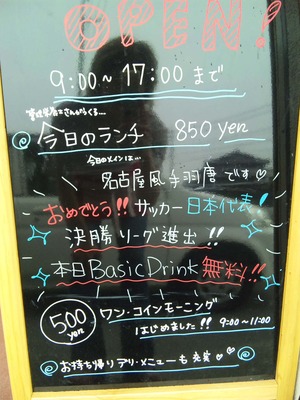 OPEN!
9:00~17:00まで
管理栄養士さんがつくる...
今日のランチ 850yen
今日のメインは...
名古屋風手羽唐です♡
おめでとう!! サッカー日本代表!
決勝リーグ進出!!
本日BasicDrink無料!!
500yen
ワン・コインモーニング
はじめました!! 9:00~11:00
お持ち帰りデリ・メニューも充実♡♡